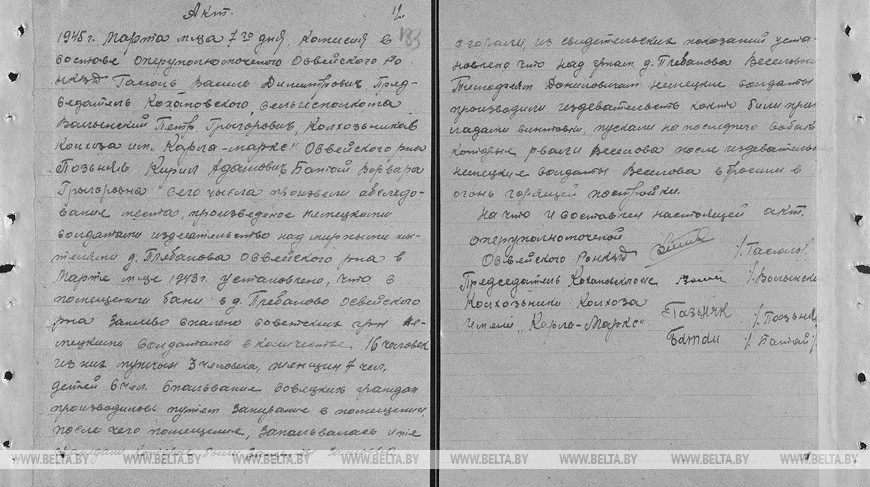 Акт.
12
183
1945 г. Марта м-ца 7го дня. Комисия в
составе Оперуполномоченого Освейского Ро
НКВД Василь Димитрович, Пред-
ведатель Кохановского сельисполкома
Волынский Петр Грыгорович, Колхозников
Колхоза им. "Карла-Маркс" Освейского рна
Позьняк Кирил Адамович Батай Варвара
Грыгоровна сего числа произвели обследо-
вание места, произведеное немецкими
солдатами издевательство над мирными жи-
телями д. Освейского рна в
Марте м-це 1943 г. установлено, что в
помещении бани в д. Освейского
рна Заживо спалено советских грн не-
мецкими солдатами в количестве 16 человек
из них мужчын 3 человека, женщин 7 чел,
детей 6 чел. Спальвание совецких граждан
производилось путем запирание в помещении,
после чего помещение, запальвалась и те
граждани которые были
сгорали, из свидетельских показаний уста-
новлено что над грном д. Веселовы
Даниловичам немецкие солдаты
производили издевательства как то били при
кладами винтовки, пускали на последнего собак
которые рвали Веселова после издевательс
немецкие солдаты Веселова в бросили в
огонь горящей постройки.
На что и составлен настоящей акт.
оперуполномоченой
Освейского РОНКВД /.
Председатель /. Волынски
Колхозники Колхоза
имени "Карла-Маркс" Пазьняк /. Позьняк
Батай /. Батай /.
WWW.BELTA.BY WWW.BELTA.BY WWW.BELTA.BY WWW.BELTA.BY WWW.BELTA.BY WWW.BELTA.BY